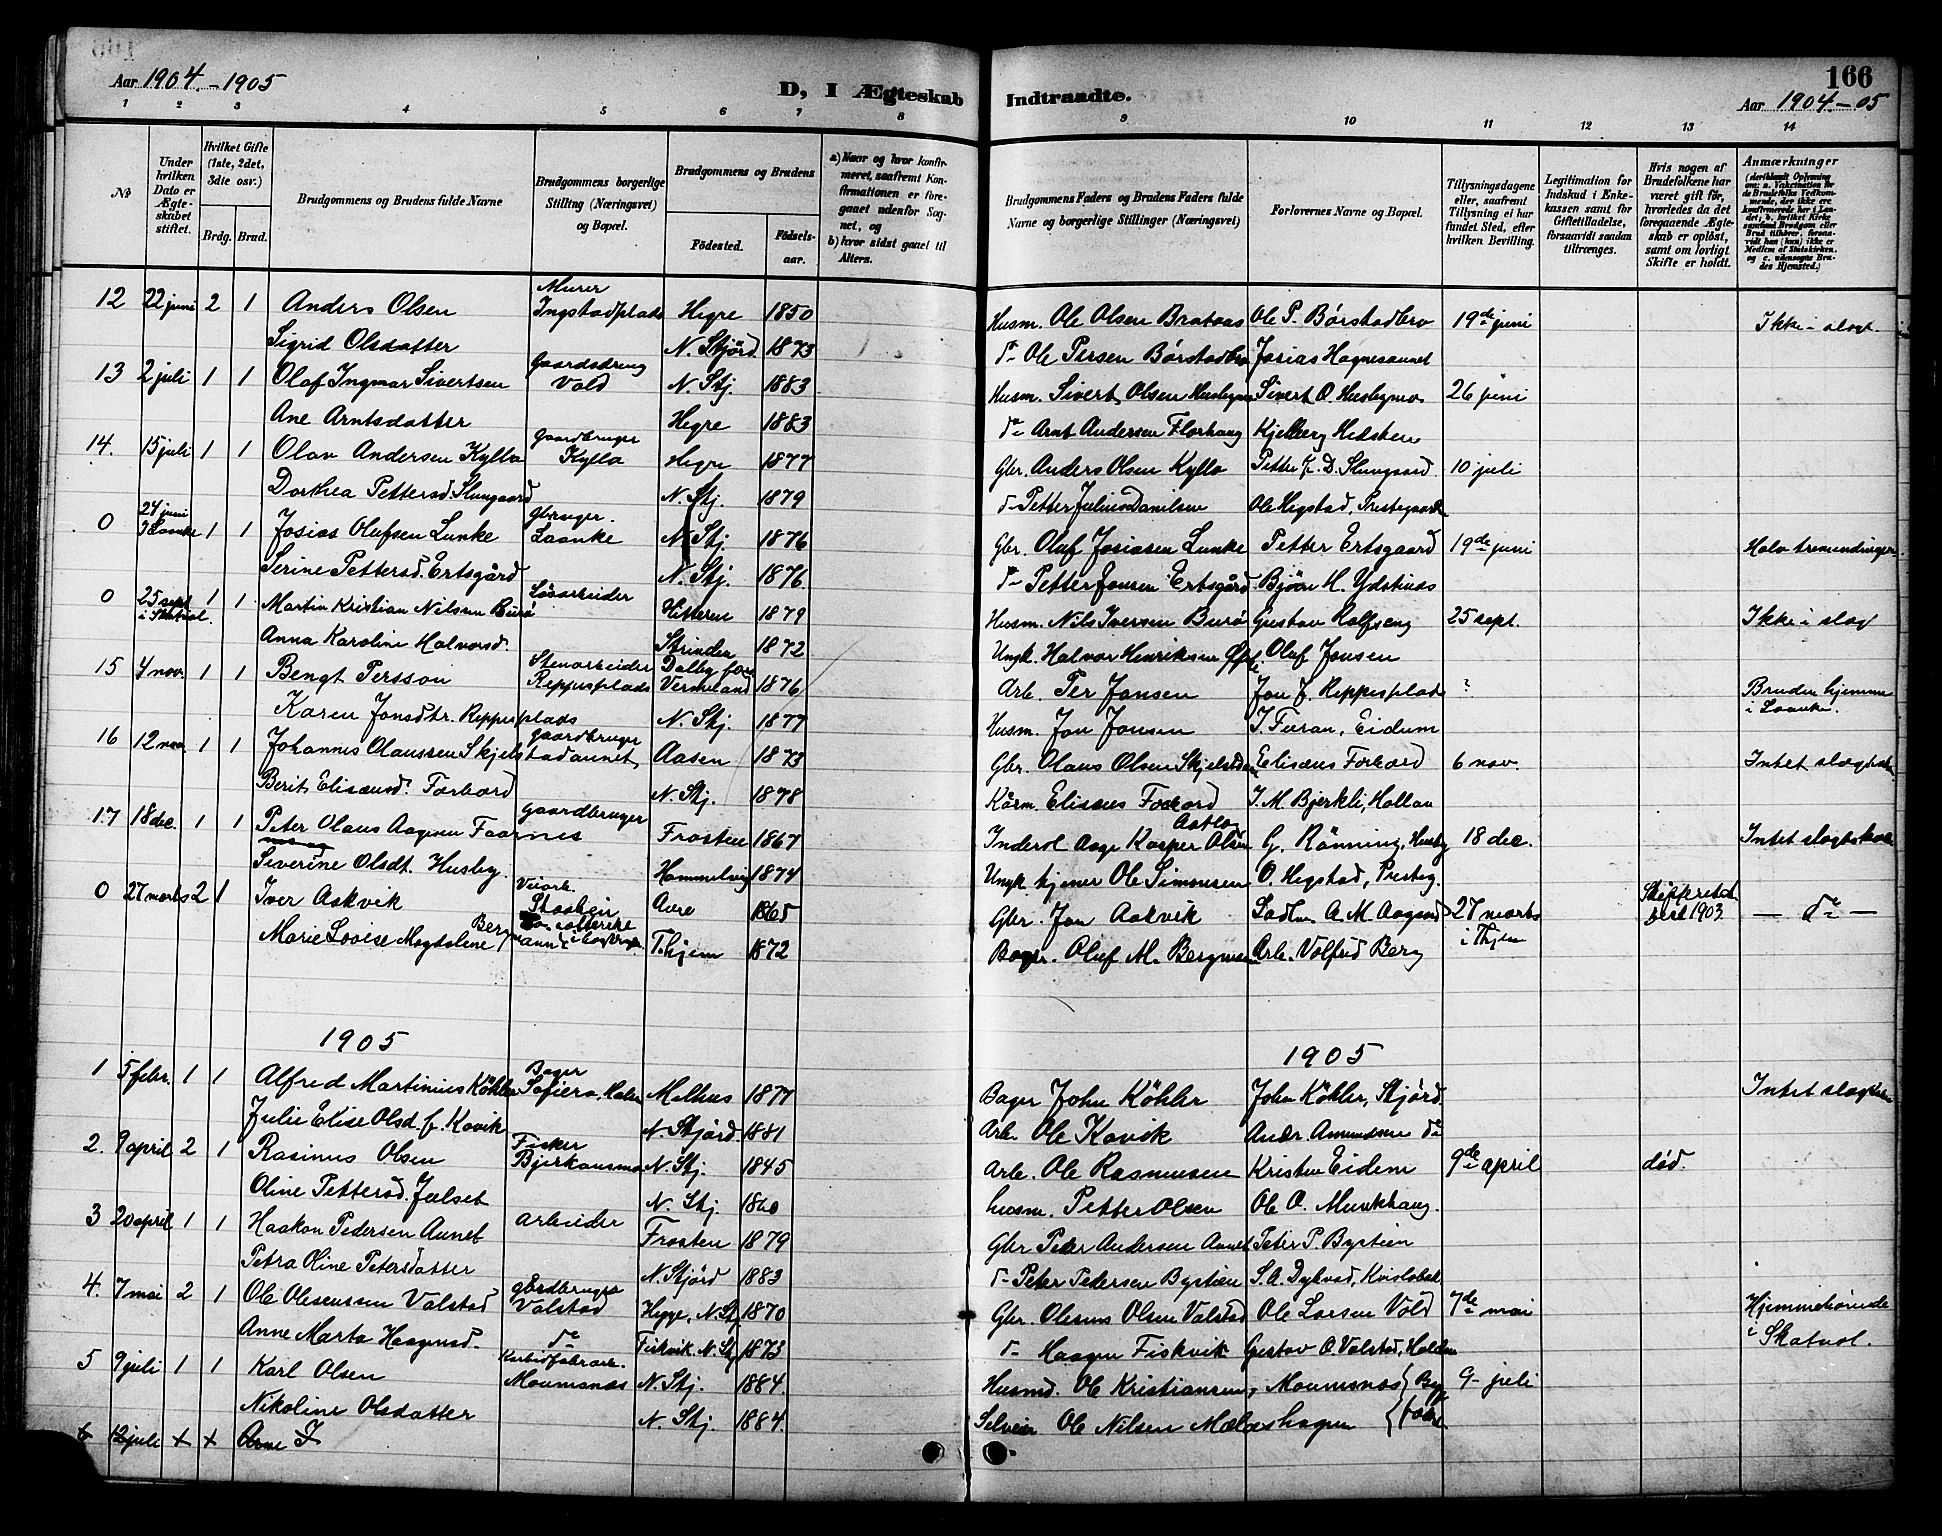 Aar 1904.-1905
D, I Ægteskab Indtraadte.
166
Aar 1904.-05
1 2 3 4 5 6 7 8 9 10 11 12 13 14
No
Under hvilken Dato er Ægteskabet stiftet.
Hvilket Gifte (1ste, 2det, 3die osv.)
Brdg. Brud.
Brudgommens og Brudens fulde Navne
Brudgommens borgerlige Stilling (Næringsvei) og Bopæl.
Brudgommens og Brudens
Fødested.
Fødselsaar.
a) Naar og hvor konfirmeret, saafremt Konfirmationen er foregaaet udenfor Sognet, og
b) hvor sidst gaaet til Alters.
Brudgommens Faders og Brudens Faders fulde Navne og borgerlige Stillinger (Næringsvei)
Forlovernes Navne og Bopæl.
Tillysningsdagene eller, saafremt Tillysning ei har fundet Sted, efter hvilken Bevilling.
Legitimation for Indskud i Enkekassen samt for Giftetilladelse, forsaavidt saadan tiltrænges.
Hvis nogen af Brudefolkene har været gift før, hvorledes da det foregaaende Ægteskab er opløst, samt om lovligt Skifte er holdt.
Anmærkninger (deriblandt Oplysning om: a. Vaccination for de Brudefolks Vedkommende, der ikke ere konfirmerede her i Landet; b. hvilket Kirkesamfund Brudgom eller Brud tilhører, forsavidt han (hun) ikke er Medlem af Statskirken, og c. udensogns Brudes Hjemsted.)
12 22 juni 2 1 Anders Olsen Murer Ingstadplads Hegre 1850 Husm. Ole Olsen Brataas Ole P. Børstadbro 19de juni Ikke i slagt.
Sigrid Olsdatter N. Stjørd. 1873 do Ole Persen Børstadbro Josias Hognesaunet
13 2 juli 1 1 Olaf Ingmar Sivertsen Gaardsdreng Vold N. Stj. 1883 Husm. Sivert Olsen Husbymo Sivert O. Husbymo 26 juni
Ane Arntsdatter Hegre 1883 do Arnt Andersen Florhaug Kjelberg Hedsken
14. 15 juli 1 1 Olav Andersen Kyllo Gaardbruger Kyllo Hegre 1877 Gbr. Anders Olsen Kyllo Petter J. D. Slungaard 10 juli
Dorthea Pettersd. Slungaard N. Stj. 1879 do Petter Julius Danielsen Ole Hegstad, Prestegaarden
0 24 juni i Laanke 1 1 Josias Olufsen Lunke Gbruger. Laanke N. Stj. 1876 Gbr. Oluf Josiasen Lunke Petter Ertsgaard 19de juni Halv tremendinger
Serine Pettersd. Ertsgård N. Stj. 1876 do Petter Jonsen Ertsgård Bjørn H. Ydstinds
0 25 sept i Skatval. 1 1 Martin Kristian Nilsen Burø Løsarbeider Hitteren 1879 Husm. Nils Iversen Burø Gustav Rolfseng 25 sept. Ikke i slagt
Anna Karoline Halvorsd. Strinden 1872 Ungk. Halvor Henriksen Øfsti Oluf Jonsen
15 4 nov. 1 1 Bengt Persson Stenarbeider Reppesplads Dalby fors. Vermeland 1876 Arb. Per Jansen Jon J. Reppesplads ? Bruden hjemme i Laanke.
Karen Jonsdtr. Reppesplads N. Stj. 1877 Husm. Jon Jonsen I. Furan, Eidum
16 12 nov 1 1 Johannes Olaussen Skjelstadaunet Gaardbruger Aasen 1873 Gbr. Olaus Olsen Skjelstadaun Eliseus Forbord 6 nov. Intet slagtsk
Berit Eliseusd. Forbord N. Stj. 1878 Kårm. Eliseus Forbord I. M. Bjerkli, Hollan
17 18 dec. 1 1 Peter Olaus Aagesen Faarnes Gaardbruger Frosten 1867 Inderst Aage Kasper Olsen G. Rønning, Husby 18 dec. Intet slagtskab
Severine Olsdt. Husby. Hommelvig 1874 Ungk. tjener Ole Simonsen O. Hegstad, Presteg.
0 27 marts 2 1 Iver Aakvik Avre 1865 Gbr. Jon Aakvik Sadlm. A. M. Aagaard 27 marts i Thjem 1903 — do —
Marie Lovise Magdalene Bergmann T.hjem 1872 Bager. Oluf M. Bergmann Arb. Volfred Berg
1905 1905
1 5 febr. 1 1 Alfred Martinius Köhler Bager Melhus 1877 Bager John Köhler John Köhler, Stjørd. Intet slagtsk
Julie Elise Olsd. f. Kovik N. Stjørd. 1881 Arb. Ole Kovik Andr. Amundsen do
2. 9 april 2 1 Rasmus Olsen Fisker Bjerkansmo N. Stj. 1845 Arb. Ole Rasmussen Kristen Eidem 9de april død.
Oline Pettersd. Julset N. Stj. 1860 husm. Petter Olsen Ole O. Munkhaug.
3 20 april 1 1 Haakon Pedersen Aunet arbeider Frosten 1879 Gbr Peder Andersen Aunet Peter P. Bystien
Petra Oline Petersdatter N. Stjörd 1883 do Peter Pedersen Bystien S. A. Dybvad, Kvislabak
4. 7 mai 2 1 Ole Olesenssen Valstad gaardbruger Valstad Hegge, N. Stj 1870 Gbr. Olesens Olsen Valstad Ole Larsen Vold 7de mai Hjemmehørende i Skatval.
Anne Marta Haagensd. do Fiskvik N. Stj 1873 do Haagen Fiskvik Gustav O. Valstad, Holden
5 9 juli 1 1 Karl Olsen Karbidfabrarb. Moumsnæs N. Stj. 1884. Husmd. Ole Kristiansen, Moumsnæs 9- juli
Nikoline Olsdatter N. Stj 1884. Selveier Ole Nilsen Mælashagen
6 12 juli + + Arne I